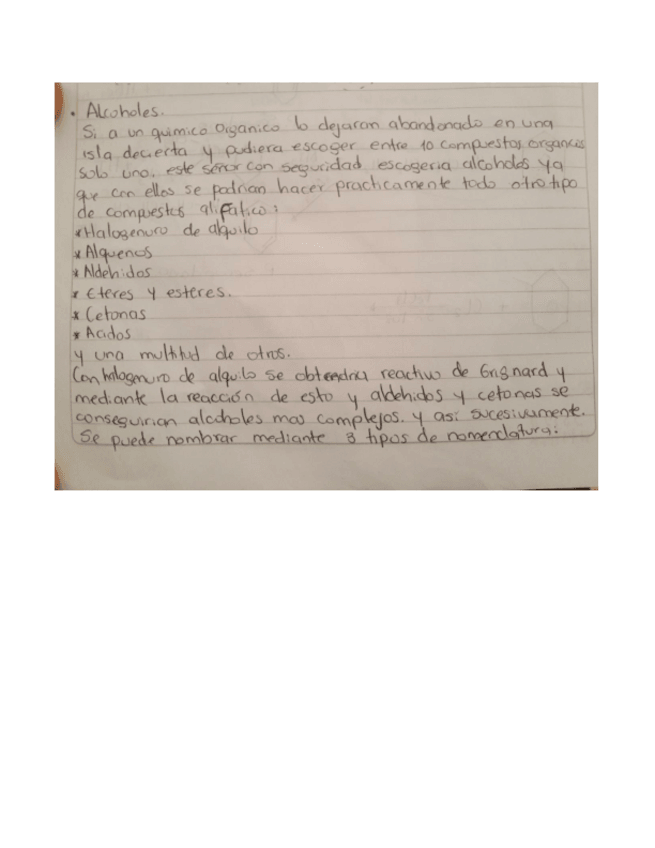 • Alcoholes.
Si a un quimico Organico lo dejaran abandonado en una
isla decierta y pudiera escoger entre 10 compuestos organicos
solo uno, este señor con seguridad, escogeria alcoholes ya
que con ellos se podrian hacer practicamente todo otro tipo
de compuestos alifatico:
*Halogenuro de alquilo
*Alquenos
*Aldehidos
*Eteres y esteres.
*Cetonas
*Acidos
y una multitud de otros.
Con halogenuro de alquilo se obtendria reactivo de Grignard y
mediante la reacción de esto y aldehidos y cetonas se
conseguirian alcoholes mas complejos. y asi sucesivamente.
Se puede nombrar mediante 3 tipos de nomenclatura: